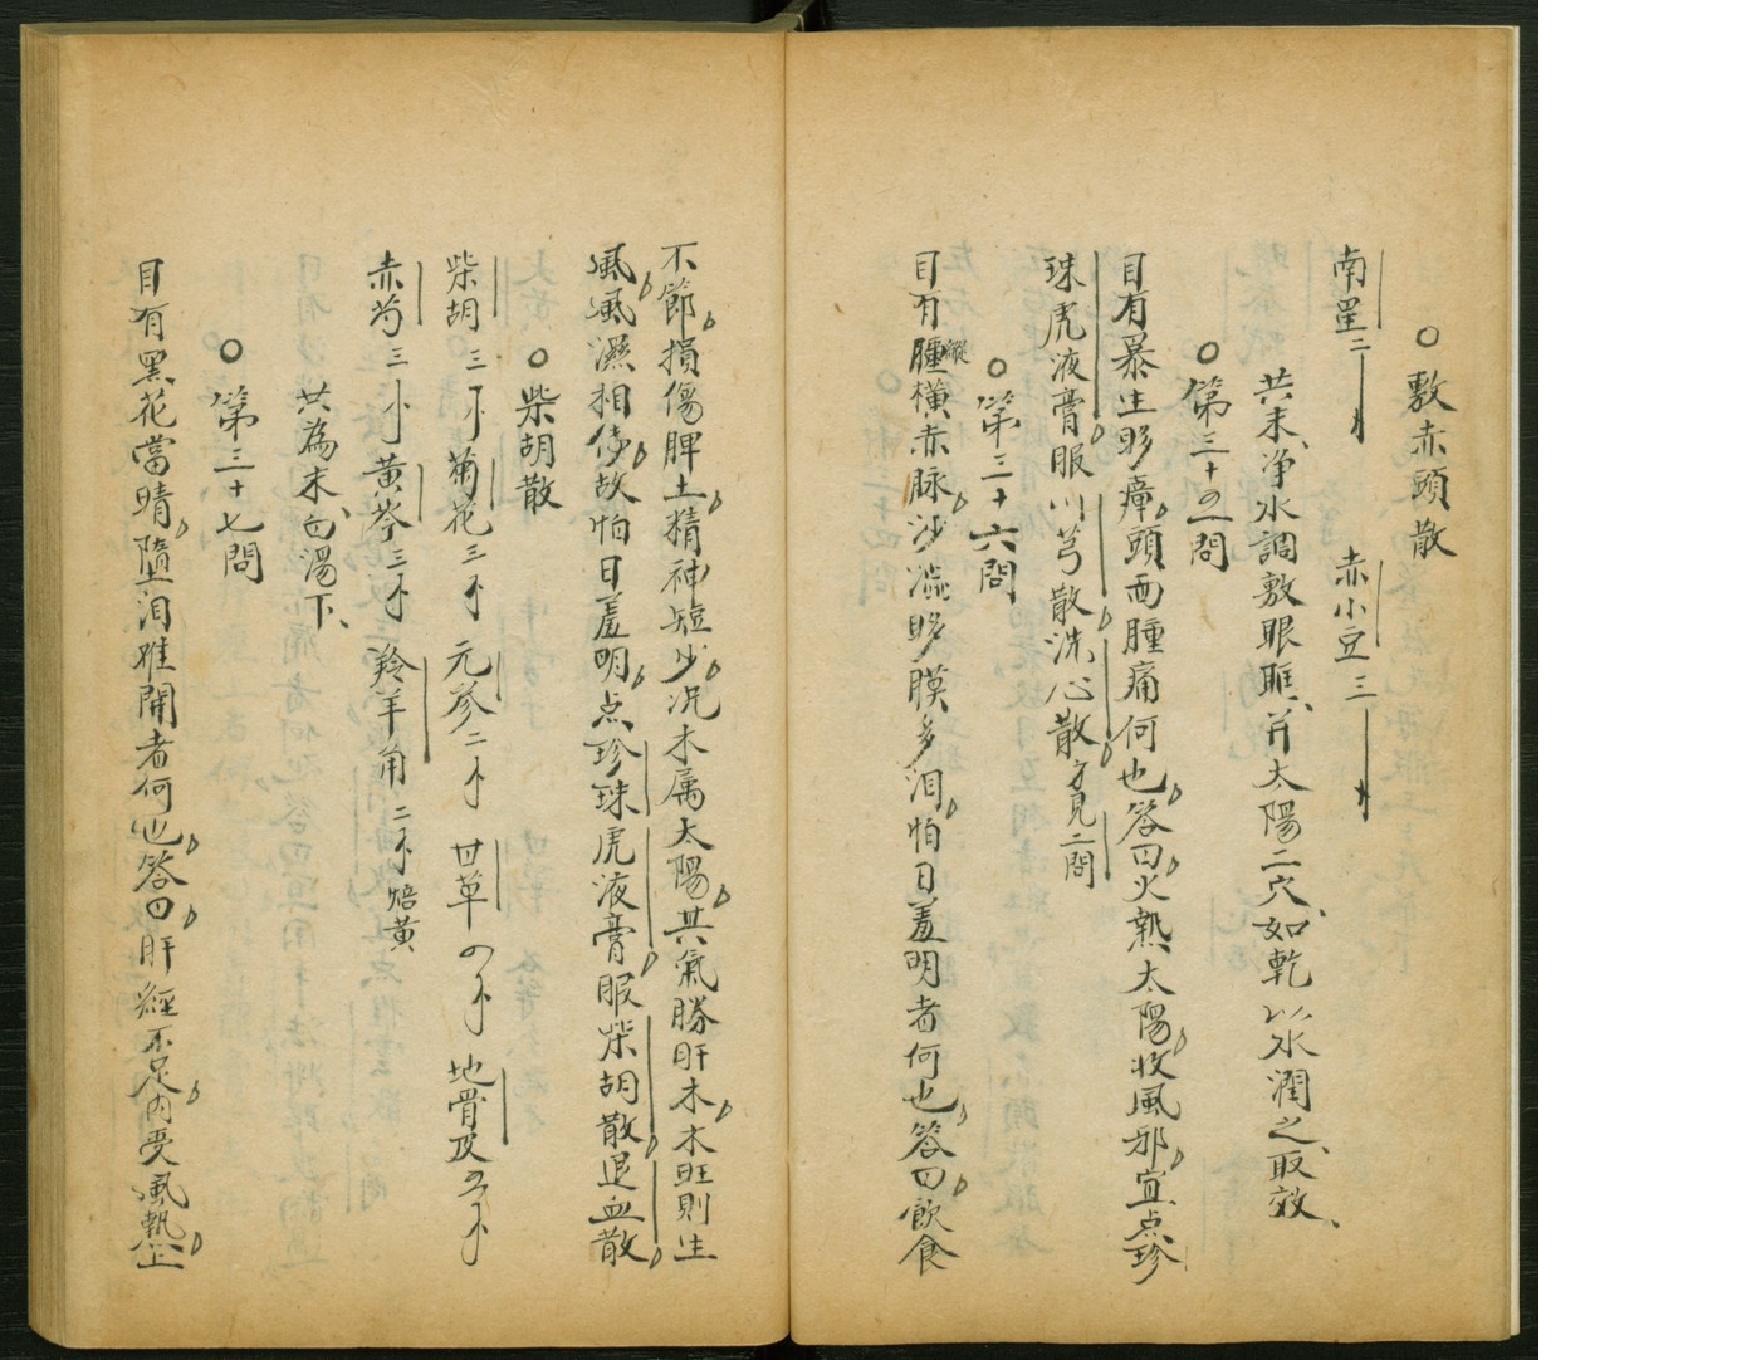 ○敷赤頭散
南星二 赤小豆三
共末、净水調敷眼眶、并太陽二穴、如乾以水潤之、取效、
○第三十五問
目有暴生眵瘴頭面腫痛何也答曰火熱太陽收風邪宜点珍
珠虎液膏服川芎散洗心散方見二問
○第三十六問
目有腫縱橫赤脉沙澁眵膜多泪怕日羞明者何也答曰飲食
不節損傷脾土精神短少况木属太陽其氣勝肝木木旺則生
風風濕相侈故怕日羞明点珍珠虎液膏服柴胡散退血散
○柴胡散
柴胡三 菊花三 元參二 甘草 地骨皮
赤芍三 黄芩三 羚羊角二 焙黄
共為末、白湯下、
○第三十七問
目有黑花當晴隨土泪难開者何也答曰肝經不足内受風熱上